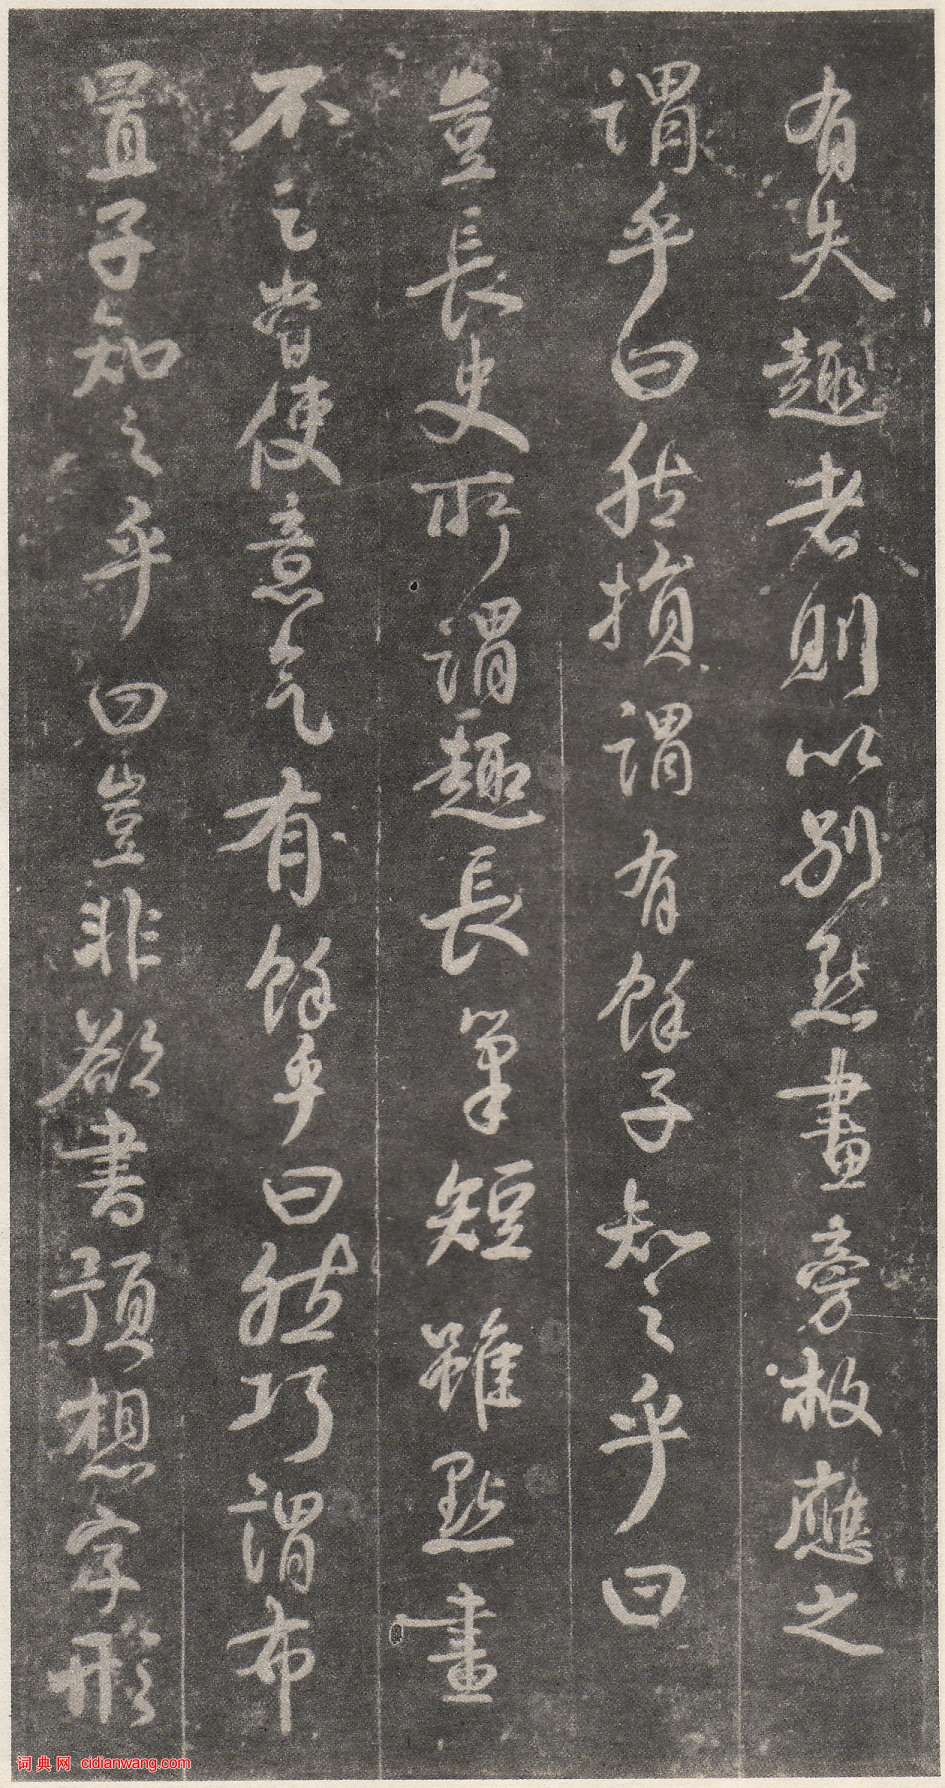 有失趣者則以別點畫旁救應之
謂乎曰然損謂有餘子知之乎曰
豈長史所謂趣長筆短雖點畫
不足常使意氣有餘乎曰然巧謂布
置子知之乎曰豈非欲書預想字形
词典网 cidianwang.com